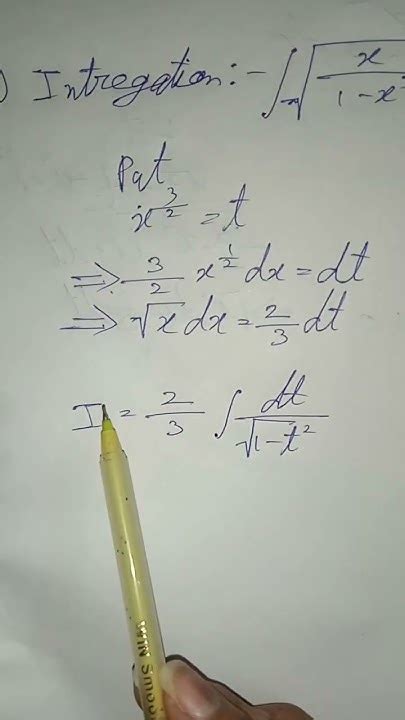 ) Intregation:- ∫√x/1-x
Put
x^3/2 = t
⇒ 3/2 x^1/2 dx = dt
⇒ √x dx = 2/3 dt
I = 2/3 ∫ dt/√1-t²